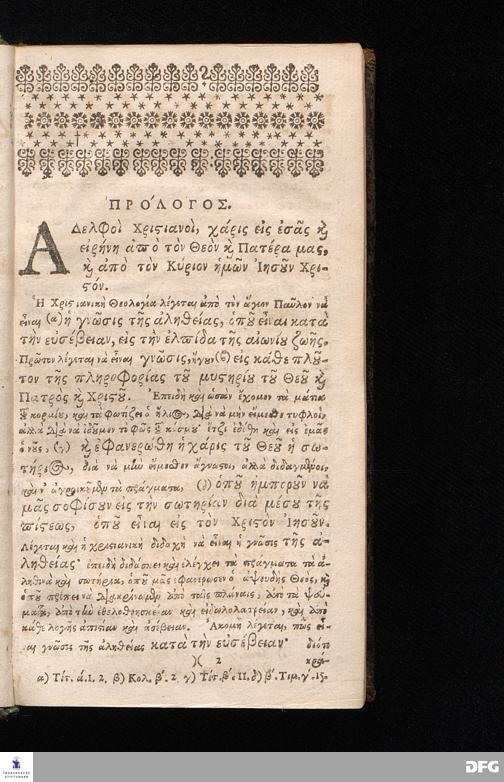 ΠΡΌΛΟΓΟΣ.
Ἀδελφοὶ Χριστιανοὶ, χάρις εἰς ἐσᾶς ϗ
εἰρήνη ἀπὸ τὸν Θεὸν ϗ Πατέρα μας,
ϗ ἀπὸ τὸν Κύριον ἡμῶν Ἰησοῦν Χρι-
στόν.
Ἡ Χριστιανικὴ Θεολογία λέγεται ἀπὸ τὸν ἅγιον Παῦλον νὰ
εἶναι (α) ἡ γνῶσις τῆς ἀληθείας, ὁποῦ εἶναι κατὰ
τὴν εὐσέβειαν, εἰς τὴν ἐλπίδα τῆς αἰωνίου ζωῆς.
Πρῶτον λέγεται νὰ εἶναι γνῶσις, ἤγουν (β) εἰς κάθε πλοῦ-
τον τῆς πληροφορίας τοῦ μυστηρίου τοῦ Θεοῦ ϗ
Πατρὸς ϗ Χριστοῦ. Ἐπειδὴ καὶ ὡσὰν ἔχομεν τὰ μάτια
τοῦ κορμίου, καὶ τὰ φωτίζει ὁ ἥλιος, διὰ νὰ μὴν εἴμεσθε τυφλοὶ,
ἀλλὰ διὰ νὰ ἰδοῦμεν τὸ φῶς τοῦ κόσμου· ἔτζι ἐδόθη καὶ εἰς ἐμᾶς
ὁ νοῦς, (γ) ϗ ἐφανερώθη ἡ χάρις τοῦ Θεοῦ ἡ σω-
τήριος, διὰ νὰ μὴν εἴμεσθεν ἄγνωστοι, ἀλλὰ διδαγμένοι,
καὶ ν' ἀγροικοῦμεν τὰ πράγματα, (δ) ὁποῦ ἠμποροῦν νὰ
μᾶς σοφίσουν εἰς τὴν σωτηρίαν διὰ μέσου τῆς
πίστεως, ὁποῦ εἶναι εἰς τὸν Χριστὸν Ἰησοῦν.
Λέγεται καὶ ἡ χριστιανικὴ διδαχὴ νὰ εἶναι ἡ γνῶσις τῆς ἀ-
ληθείας· ἐπειδὴ διδάσκει καὶ ἐλέγχει τὰ πράγματα τὰ ἀ-
ληθινὰ καὶ σωτήρια, ὁποῦ μᾶς ἐφανέρωσεν ὁ ἀψευδὴς Θεὸς, ϗ
ὁποῦ πρέπει νὰ διακρίνωμεν ἀπὸ ταῖς πλάναις, ἀπὸ τὰ ψεύ-
ματα, ἀπὸ τὴν ἐθελοθρησκείαν καὶ εἰδωλολατρείαν, καὶ ἀπὸ
κάθε λογῆς ἀπιστίαν καὶ ἀσέβειαν. Ἀκόμη λέγεται, πῶς εἶ-
ναι γνῶσις τῆς ἀληθείας κατὰ τὴν εὐσέβειαν· διότι
)( 2
α) Τίτ. ά. 1. 2. β) Κολ. β΄. 2. γ) Τίτ. β΄. 11. δ) β΄. Τιμ. γ΄. 15.
DFG